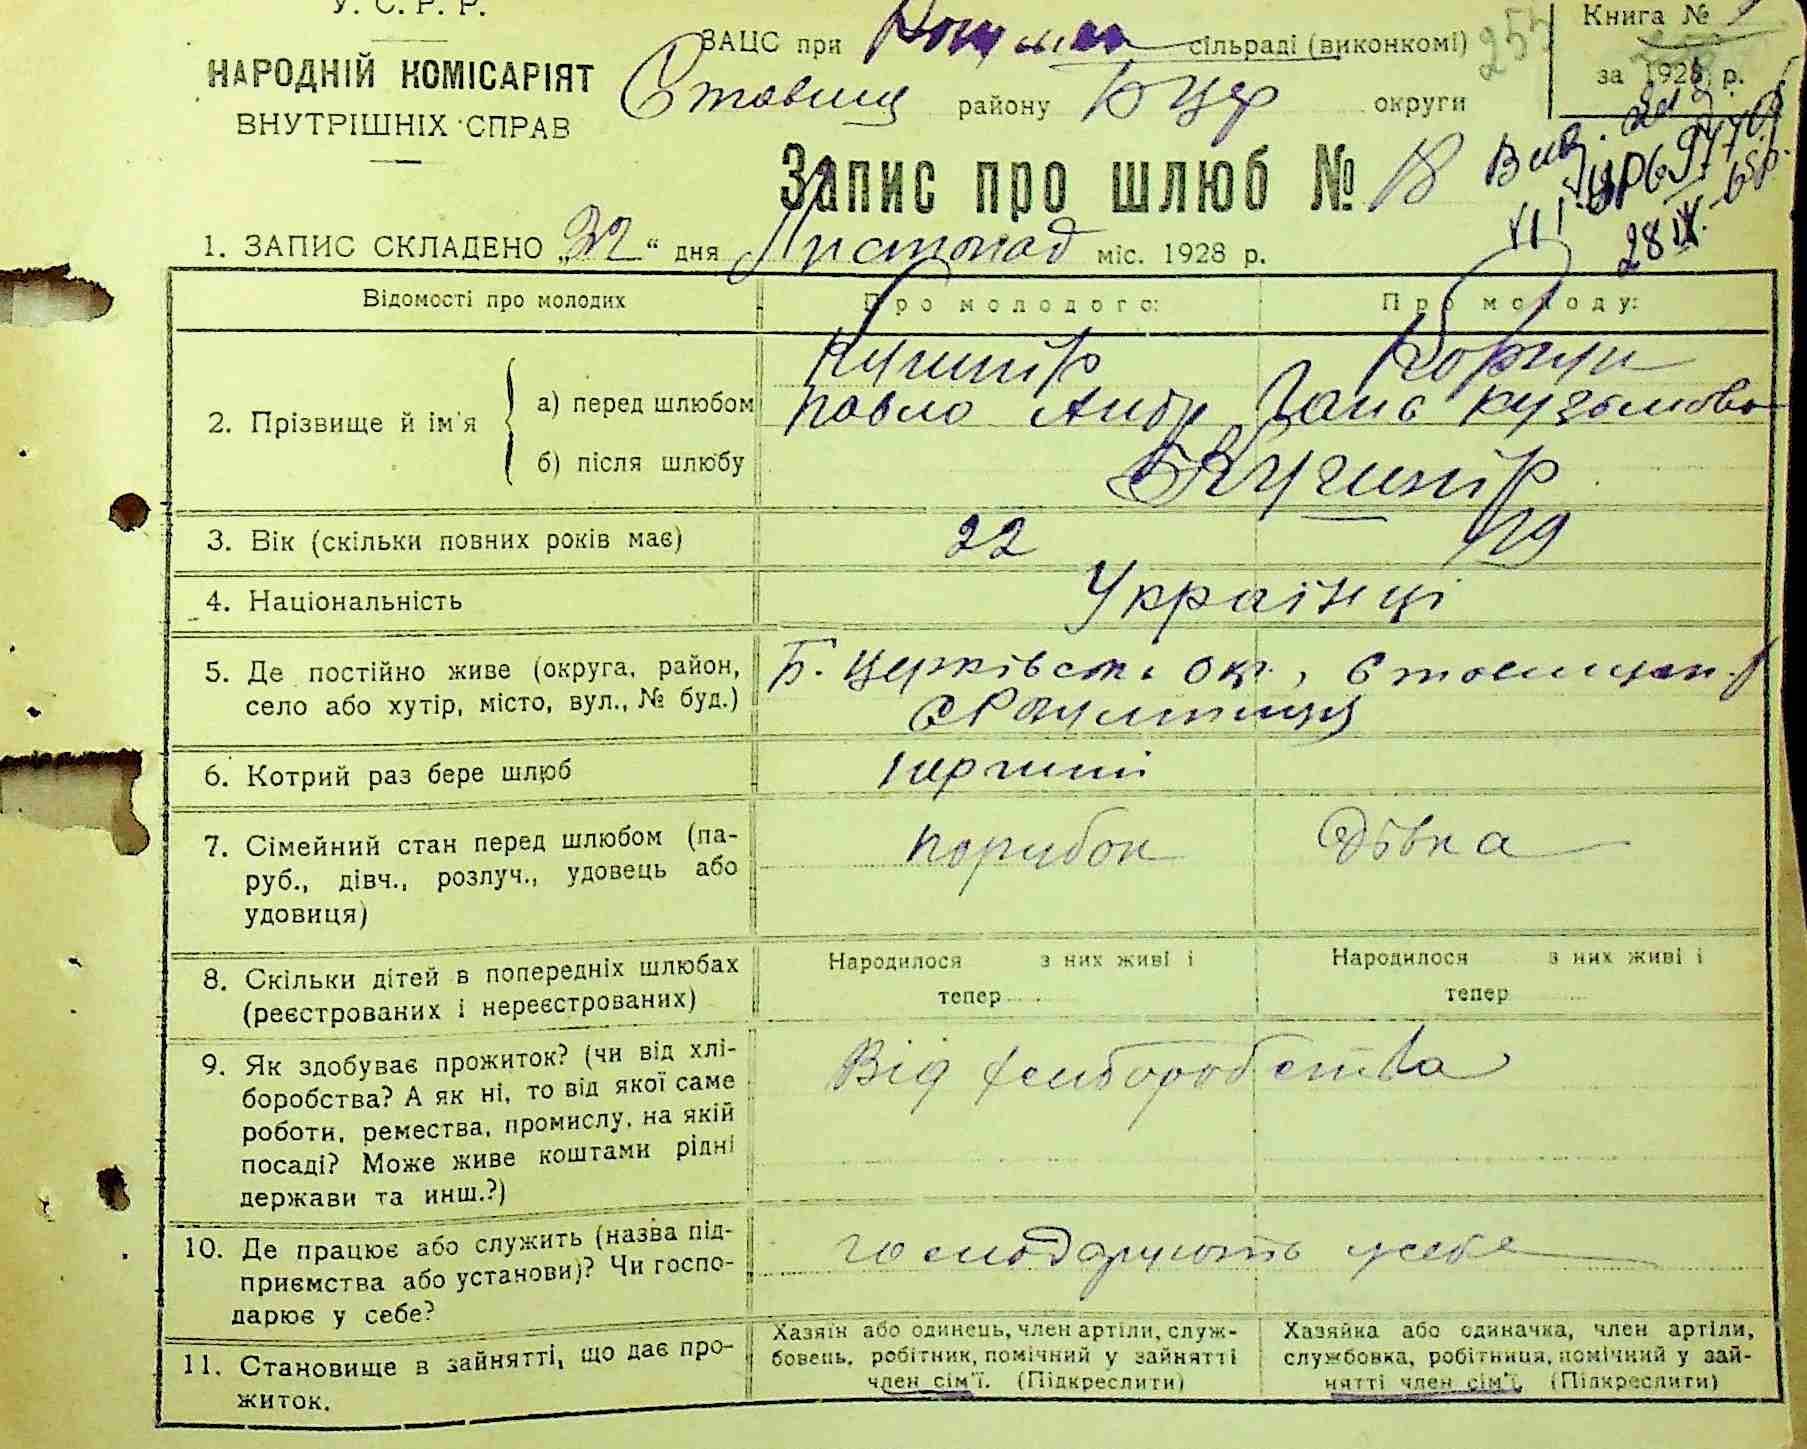 У. С. Р. Р.
НАРОДНІЙ КОМІСАРІЯТ
ВНУТРІШНІХ СПРАВ
ЗАЦС при сільраді (виконкомі)
Ставищ району БЦер округи
Книга №
за 1928 р.
257
Запис про шлюб № 18
28 IX
1. ЗАПИС СКЛАДЕНО „ “ дня Листопад міс. 1928 р.
Відомості про молодих Про молодого: Про молоду:
2. Прізвище й ім'я
а) перед шлюбом
Кушнір
Павло Андр Кузьмова
б) після шлюбу Кушнір
3. Вік (скільки повних років має) 22 19
4. Національність Українці
5. Де постійно живе (округа, район,
село або хутір, місто, вул., № буд.)
Б. Церківськ. окр.,
6. Котрий раз бере шлюб перший
7. Сімейний стан перед шлюбом (па-
руб., дівч., розлуч., удовець або
удовиця)
парубок Дівка
8. Скільки дітей в попередніх шлюбах
(реєстрованих і нереєстрованих)
Народилося з них живі і
тепер
Народилося з них живі і
тепер
9. Як здобуває прожиток? (чи від хлі-
боробства? А як ні, то від якої саме
роботи, ремества, промислу, на якій
посаді? Може живе коштами рідні
держави та инш.?)
Від хліборобства
10. Де працює або служить (назва під-
приємства або установи)? Чи госпо-
дарює у себе?
господарують у себе
11. Становище в зайнятті, що дає про-
житок.
Хазяїн або одинець, член артіли, служ-
бовець, робітник, помічний у зайнятті
член сім'ї. (Підкреслити)
Хазяйка або одиначка, член артіли,
службовка, робітниця, помічний у зай-
нятті член сім'ї. (Підкреслити)